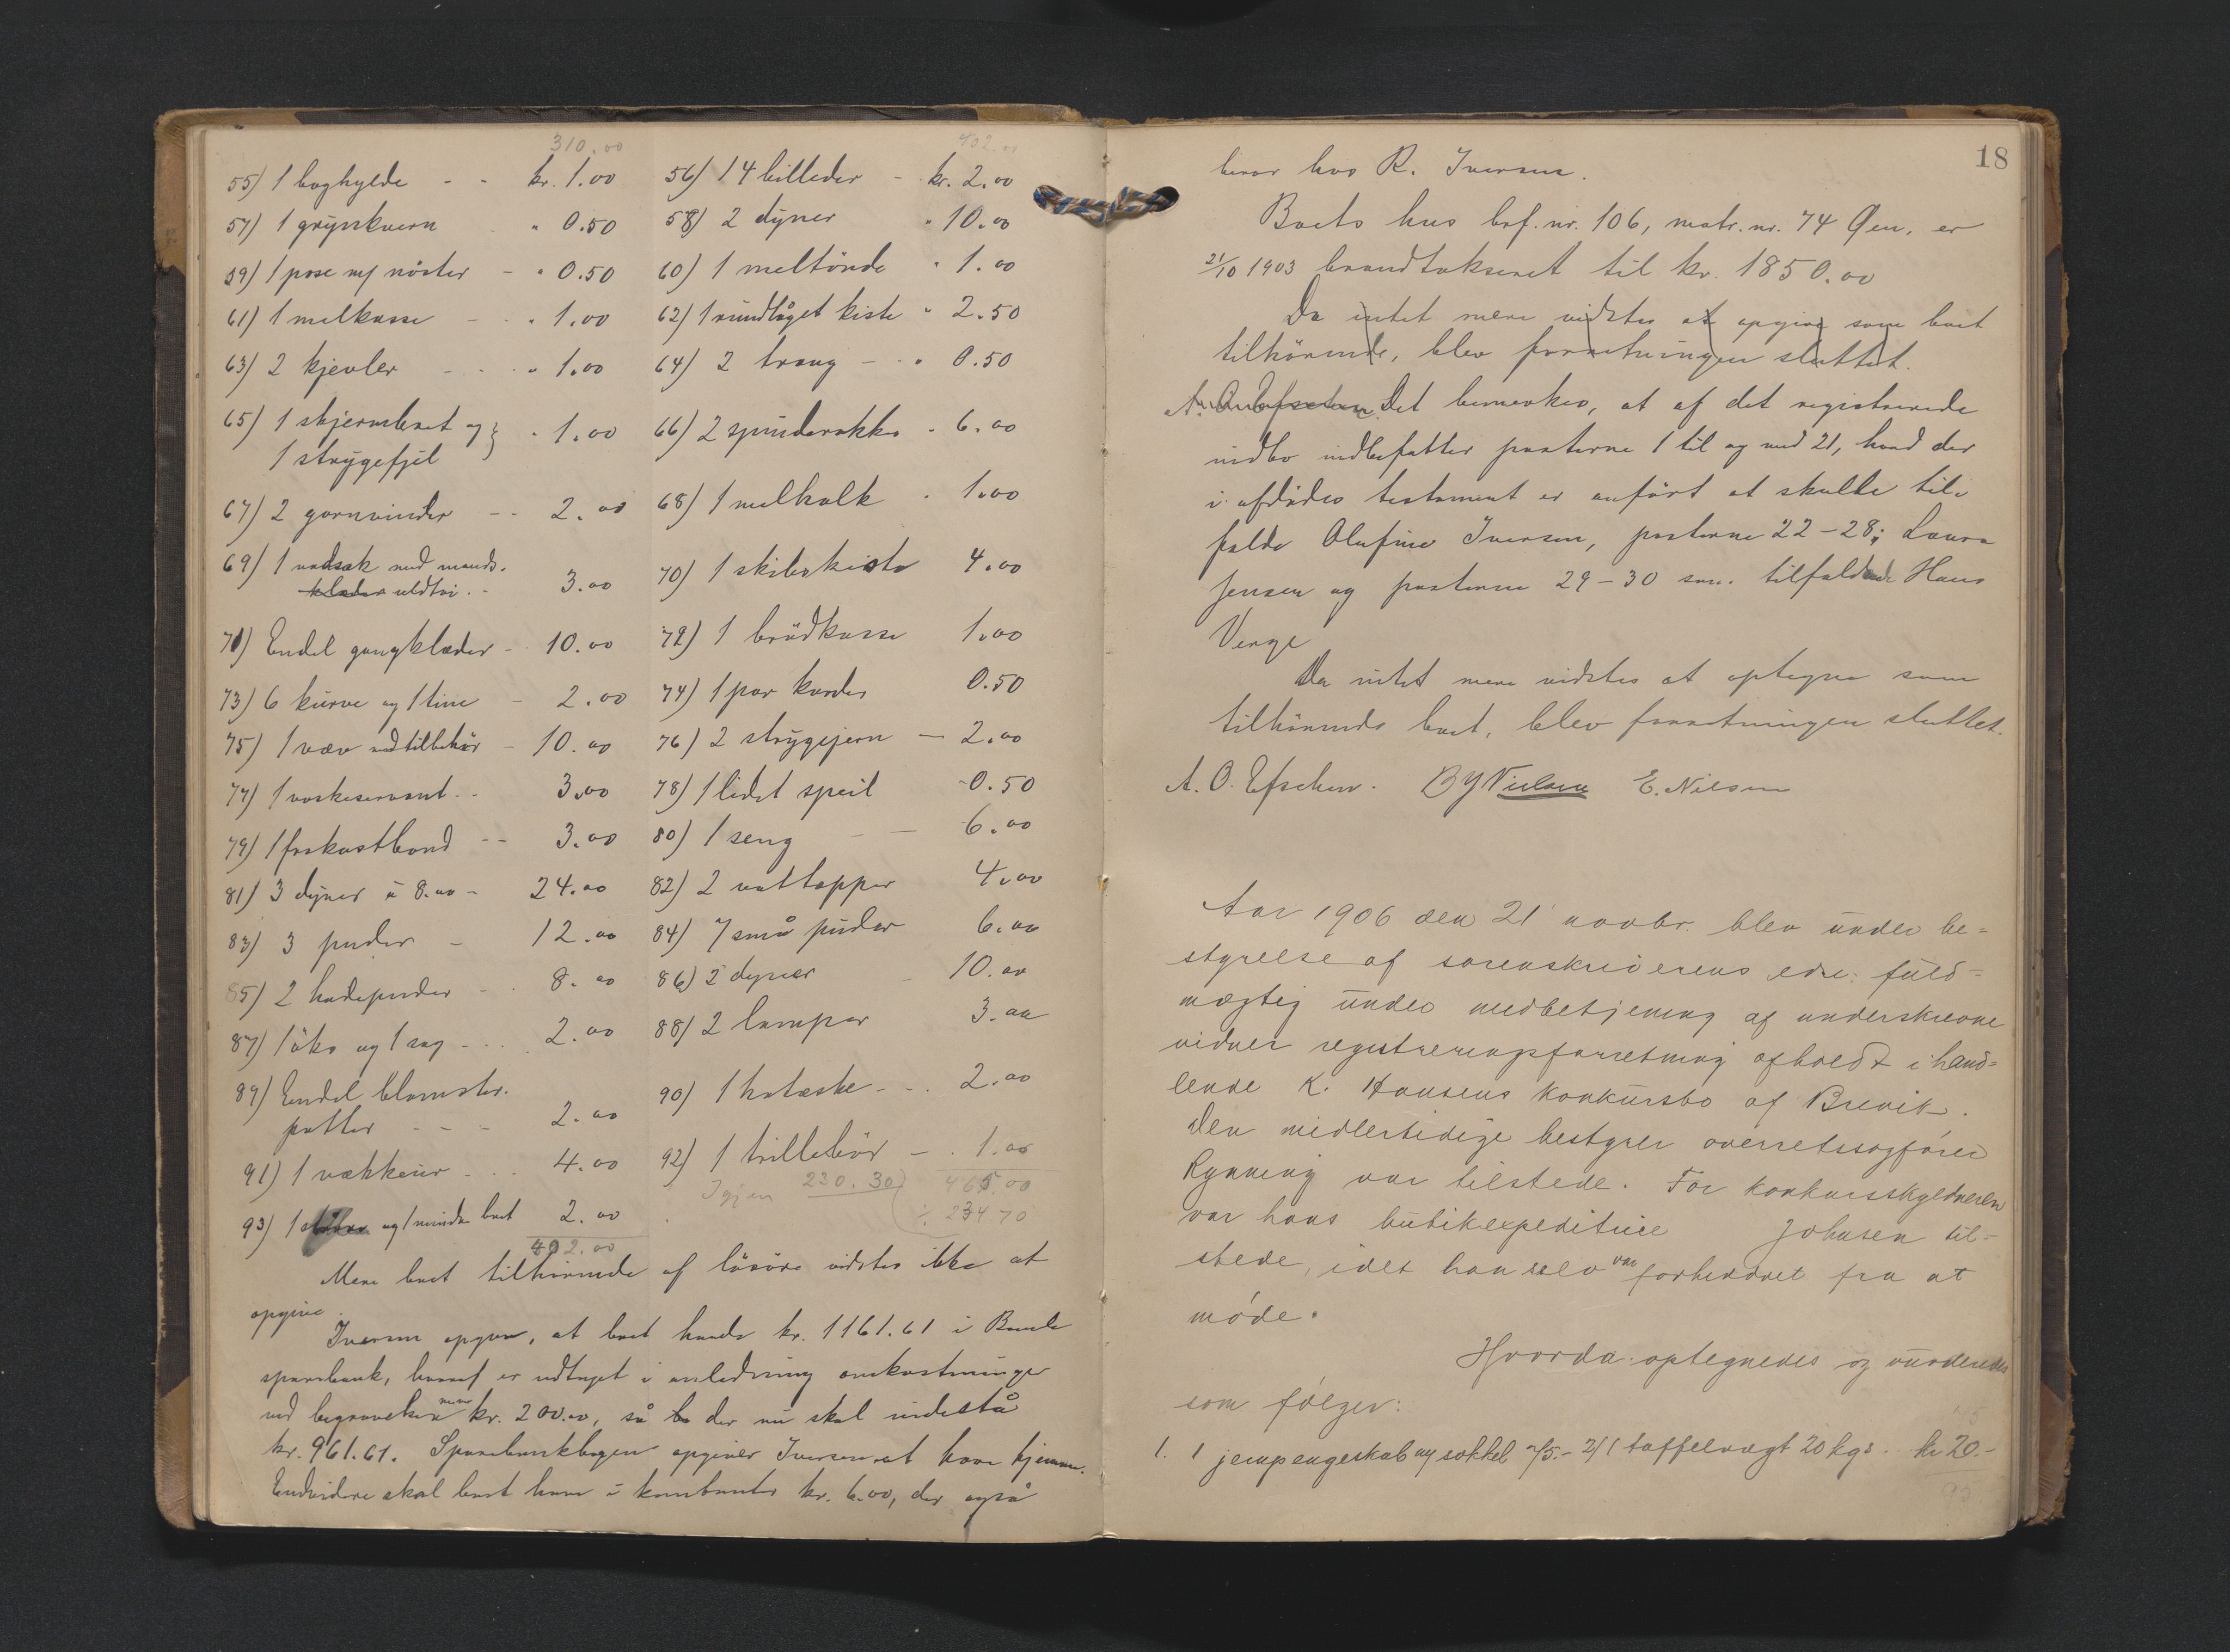 310.00 402.00
55) 1 boghylde - - kr. 1.00 56) 14 billeder - kr. 2.00
57) 1 grynkvern - " 0.50 58) 2 dyner " 10.00
59) 1 pose m/ nöster - " 0.50 60) 1 meltönde " 1.00
61) 1 melkasse - " 1.00 62) 1 rundlåget kiste " 2.50
63) 2 kjevler - - " 1.00 64) 2 traug - " 0.50
65) 1 skjærmbret og } " 1.00 66) 2 spinderokke " 6.00
1 strygefjel
67) 2 garnvinder - - 2.00 68) 1 melholk " 1.00
69) 1 vadsæk med mands-
klæder uldtöi - 3.00 70) 1 skibskiste 4.00
71) Endel gangklæder - 10.00 72) 1 brödkasse 1.00
73) 6 kurve og 1 tine - 2.00 74) 1 par karder 0.50
75) 1 væv med tilbehör - 10.00 76) 2 strygejern - 2.00
77) 1 vaskeservant - 3.00 78) 1 lidet speil - 0.50
79) 1 frokostbord - - 3.00 80) 1 seng - - 6.00
81) 3 dyner à 8.00 - 24.00 82) 2 vattepper 4.00
83) 3 puder - 12.00 84) 7 små puder 6.00
85) 2 hodepuder - 8.00 86) 2 dyner 10.00
87) 1 öks og 1 sag - 2.00 88) 2 lamper 3.00
89) Endel blomster-
potter - - - 2.00 90) 1 hatæske - - 2.00
91) 1 vækkeur - 4.00 92) 1 trillebör - 1.00
Igjen 230.30 465.00
93) 1 og 1 mindre bord 2.00 ./. 234 70
402.00
Mere boet tilhörende af lösöre vidstes ikke at
opgive.
Iversen opgav, at boet havde kr. 1161.61 i Bamle
sparebank, hvoraf er udtaget i anledning omkostninger
ved begravelsen kr. 200.00, så der nu skal indestå
kr. 961.61. Sparebankbogen opgiver Iversen at have hjemme.
Endvidere skal boet have i kontanter kr. 6.00, der også
18
beror hos R. Iversen.
Boets hus brf. nr. 106, matr. nr. 74 Øen, er
21/10 1903 brandtakseret til kr. 1850.00
Da intet mere vidstes at opgive som boet
tilhörende, blev forretningen sluttet.
Det bemerkes, at af det registrerede
indbo indbefatter posterne 1 til og med 21, hvad der
i afdödes testament er anfört at skulle til-
falde Olufine Iversen, posterne 22-28; Laura
Jensen og posterne 29-30 som tilfaldende Hans
Verge
Da intet mere vidstes at optegne som
tilhörende boet, blev forretningen sluttet.
A. O. Efschen. B Y Nielsen E. Nilsen
Aar 1906 den 21 novbr. blev under be-
styrelse af sorenskriverens edsv. fuld-
mægtig under medbetjening af underskrevne
vidner registreringsforretning afholdt i hand-
lende K. Hansens konkursbo af Brevik.
Den midlertidige bestyrer overretssagförer
Rynning var tilstede. For konkursskyldneren
var hans butikexpeditrice Johnsen til-
stede, idet han selv var forhindret fra at
möde.
Hvorda optegnedes og vurderedes
som fölger:
45
1. 1 jernpengeskab og sokkel 75.- 2/ 1 taffelvægt 20 kgs. kr 20.-
95